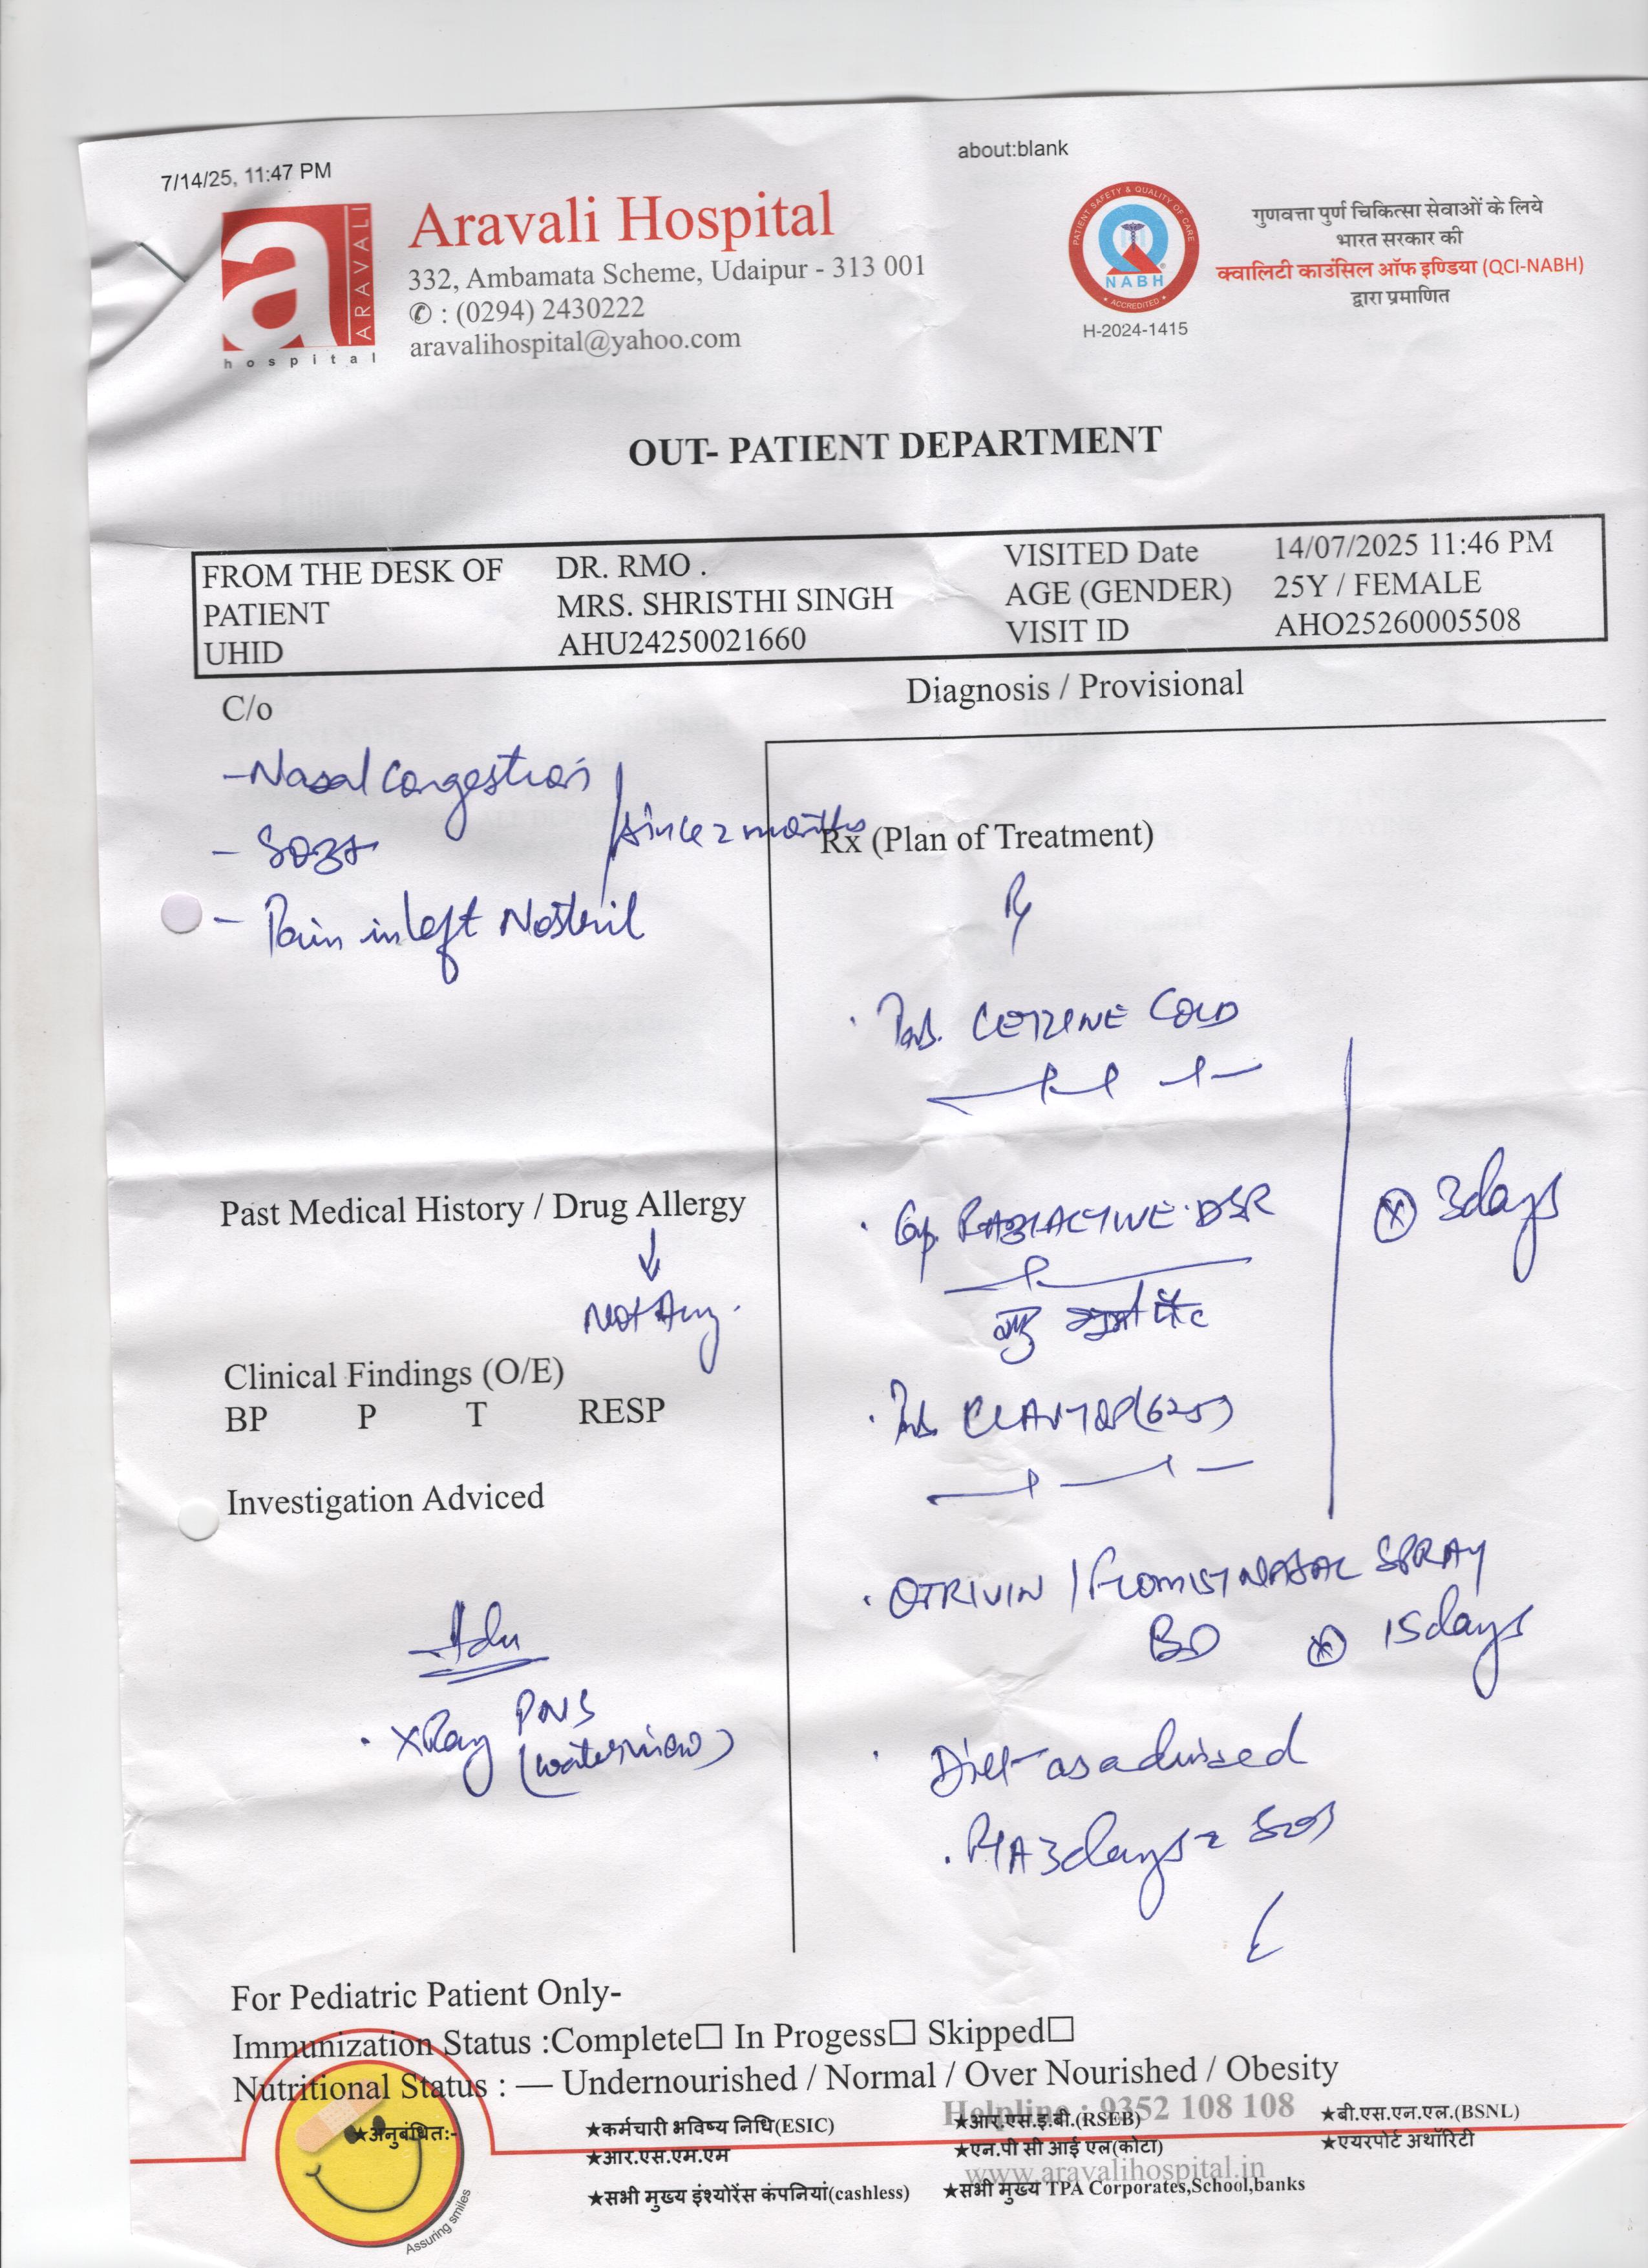 7/14/25, 11:47 PM
about:blank
ARAVALI
hospital
Aravali Hospital
332, Ambamata Scheme, Udaipur - 313 001
✆ : (0294) 2430222
aravalihospital@yahoo.com
PATIENT SAFETY & QUALITY OF CARE
NABH
ACCREDITED
H-2024-1415
गुणवत्ता पुर्ण चिकित्सा सेवाओं के लिये
भारत सरकार की
क्वालिटी काउंसिल ऑफ इण्डिया (QCI-NABH)
द्वारा प्रमाणित
OUT- PATIENT DEPARTMENT
FROM THE DESK OF DR. RMO . VISITED Date 14/07/2025 11:46 PM
PATIENT MRS. SHRISTHI SINGH AGE (GENDER) 25Y / FEMALE
UHID AHU24250021660 VISIT ID AHO25260005508
C/o
Diagnosis / Provisional
- Nasal Congestion
- SOB
since 2 months
- Pain in left Nostril
Rx (Plan of Treatment)
Rx
Tab. CETZINE COLD
Past Medical History / Drug Allergy
↓
Not Any.
Cap. RABIACTIVE-DSR
पेट
x 3days
Clinical Findings (O/E)
BP P T RESP
Tab. (625)
Investigation Adviced
OTRIVIN / FLOMIST NASAL SPRAY
BD x 15days
Adv
X Ray PNS
(waterview)
Diet as advised
3days SOS
For Pediatric Patient Only-
Immunization Status :Complete☐ In Progess☐ Skipped☐
Nutritional Status : — Undernourished / Normal / Over Nourished / Obesity
Helpline : 9352 108 108
★अनुबंधित:-
★कर्मचारी भविष्य निधि(ESIC) ★आर.एस.इ.बी.(RSEB) ★बी.एस.एन.एल.(BSNL)
★आर.एस.एम.एम ★एन.पी सी आई एल(कोटा) ★एयरपोर्ट अथॉरिटी
www.aravalihospital.in
★सभी मुख्य इंश्योरेंस कंपनियां(cashless) ★सभी मुख्य TPA Corporates,School,banks
Assuring smiles